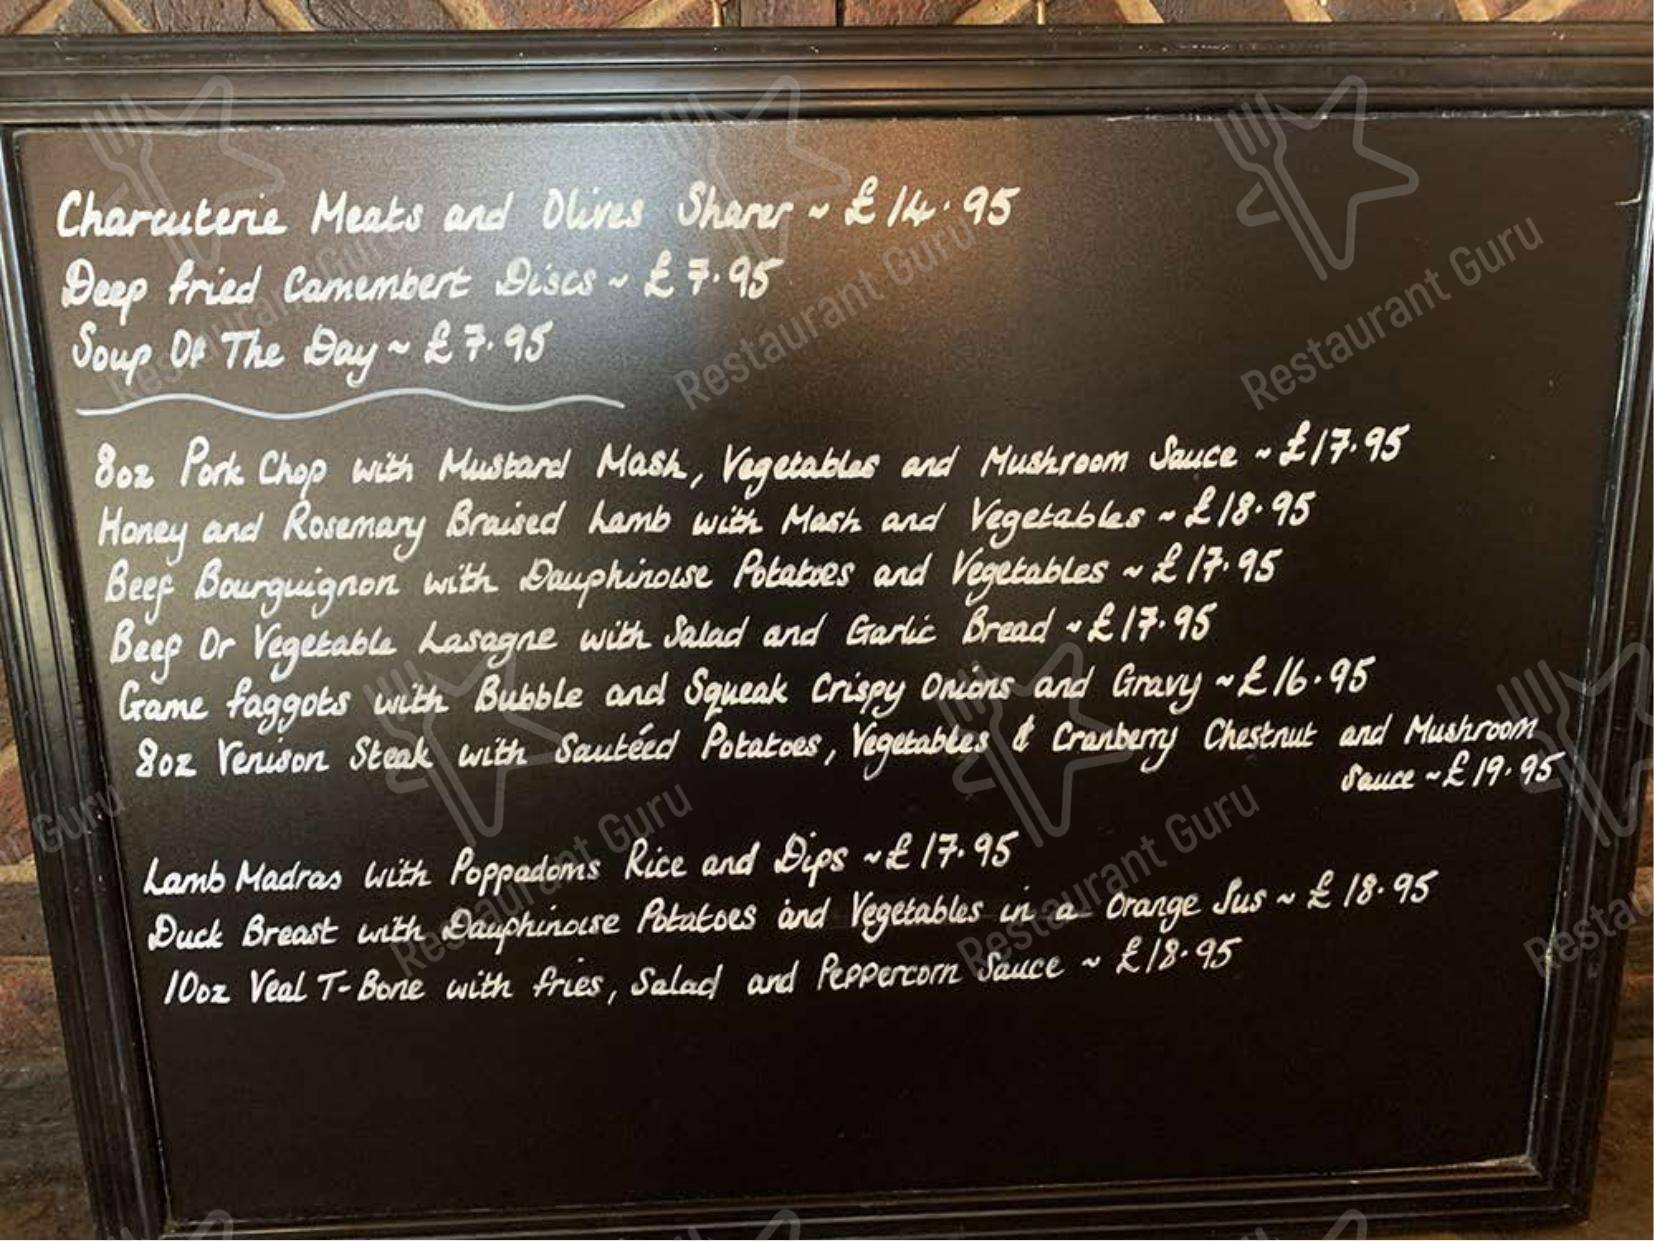 Charcuterie Meats and Olives Sharer ~ £14.95
Deep fried Camembert Discs ~ £7.95
Soup Of The Day ~ £7.95
8oz Pork Chop with Mustard Mash, Vegetables and Mushroom Sauce ~ £17.95
Honey and Rosemary Braised Lamb with Mash and Vegetables ~ £18.95
Beef Bourguignon with Dauphinoise Potatoes and Vegetables ~ £17.95
Beef Or Vegetable Lasagne with Salad and Garlic Bread ~ £17.95
Game faggots with Bubble and Squeak Crispy Onions and Gravy ~ £16.95
8oz Venison Steak with Sautéed Potatoes, Vegetables & Cranberry Chestnut and Mushroom
Sauce ~ £19.95
Lamb Madras with Poppadoms Rice and Dips ~ £17.95
Duck Breast with Dauphinoise Potatoes and Vegetables in a Orange Jus ~ £18.95
10oz Veal T-Bone with fries, Salad and Peppercorn Sauce ~ £18.95
Restaurant Guru
Restaurant Guru
Restaurant Guru
Guru
Restaurant Guru
Restaurant Guru
Restau